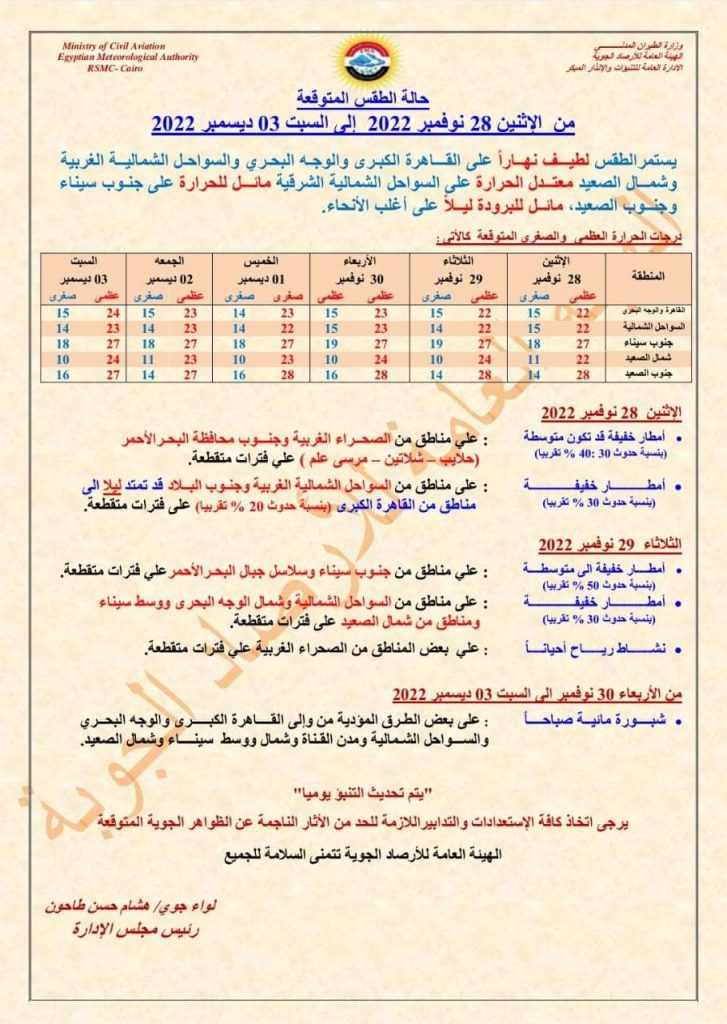 Ministry of Civil Aviation
Egyptian Meteorological Authority
RSMC- Cairo
وزارة الطيران المدني
الهيئة العامة للأرصاد الجوية
الادارة العامة للتنبؤات والإنذار المبكر
حالة الطقس المتوقعة
من الإثنين 28 نوفمبر 2022 إلى السبت 03 ديسمبر 2022
يستمر الطقس لطيف نهاراً على القاهرة الكبرى والوجه البحري والسواحل الشمالية الغربية
وشمال الصعيد معتدل الحرارة على السواحل الشمالية الشرقية مائل للحرارة على جنوب سيناء
وجنوب الصعيد، مائل للبرودة ليلاً على أغلب الأنحاء.
درجات الحرارة العظمى والصغرى المتوقعة كالآتي:
المنطقة الإثنين الثلاثاء الأربعاء الخميس الجمعه السبت
28 نوفمبر 29 نوفمبر 30 نوفمبر 01 ديسمبر 02 ديسمبر 03 ديسمبر
عظمى صغرى عظمى صغرى عظمى صغرى عظمى صغرى عظمى صغرى عظمى صغرى
القاهرة والوجه البحرى 22 15 22 15 23 15 23 14 23 15 24 15
السواحل الشمالية 22 15 22 14 23 15 22 14 23 14 23 14
جنوب سيناء 27 18 27 19 27 19 27 18 27 18 27 18
شمال الصعيد 22 11 24 10 24 10 23 10 23 11 24 10
جنوب الصعيد 28 14 28 14 28 16 28 16 27 14 27 16
الاثنين 28 نوفمبر 2022
• أمطار خفيفة قد تكون متوسطة : علي مناطق من الصحراء الغربية وجنوب محافظة البحرالأحمر
(نسبة حدوث 30: 40 % تقريبا) (حلايب – شلاتين – مرسى علم ) علي فترات متقطعة.
• أمطار خفيفة : على مناطق من السواحل الشمالية الغربية وجنوب البلاد قد تمتد ليلا الى
(نسبة حدوث 30 % تقريبا) مناطق من القاهرة الكبرى (بنسبة حدوث 20 % تقريبا) على فترات متقطعة.
الثلاثاء 29 نوفمبر 2022
• أمطار خفيفة الى متوسطة : علي مناطق من جنوب سيناء وسلاسل جبال البحرالأحمر علي فترات متقطعة.
(بنسبة حدوث 50 % تقريبا)
• أمطار خفيفة : علي مناطق من السواحل الشمالية وشمال الوجه البحرى ووسط سيناء
(نسبة حدوث 30 % تقريبا) ومناطق من شمال الصعيد على فترات متقطعة.
• نشاط رياح أحياناً : علي بعض المناطق من الصحراء الغربية علي فترات متقطعة.
من الأربعاء 30 نوفمبر الى السبت 03 ديسمبر 2022
• شبورة مائية صباحاً : على بعض الطرق المؤدية من وإلى القاهرة الكبرى والوجه البحري
والسواحل الشمالية ومدن القناة وشمال ووسط سيناء وشمال الصعيد.
"يتم تحديث التنبؤ يوميا"
يرجى اتخاذ كافة الإستعدادات والتدابيراللازمة للحد من الأثار الناجمة عن الظواهر الجوية المتوقعة
الهيئة العامة للأرصاد الجوية تتمنى السلامة للجميع
لواء جوي/ هشام حسن طاحون
رئيس مجلس الإدارة
الهيئة العامة للأرصاد الجوية